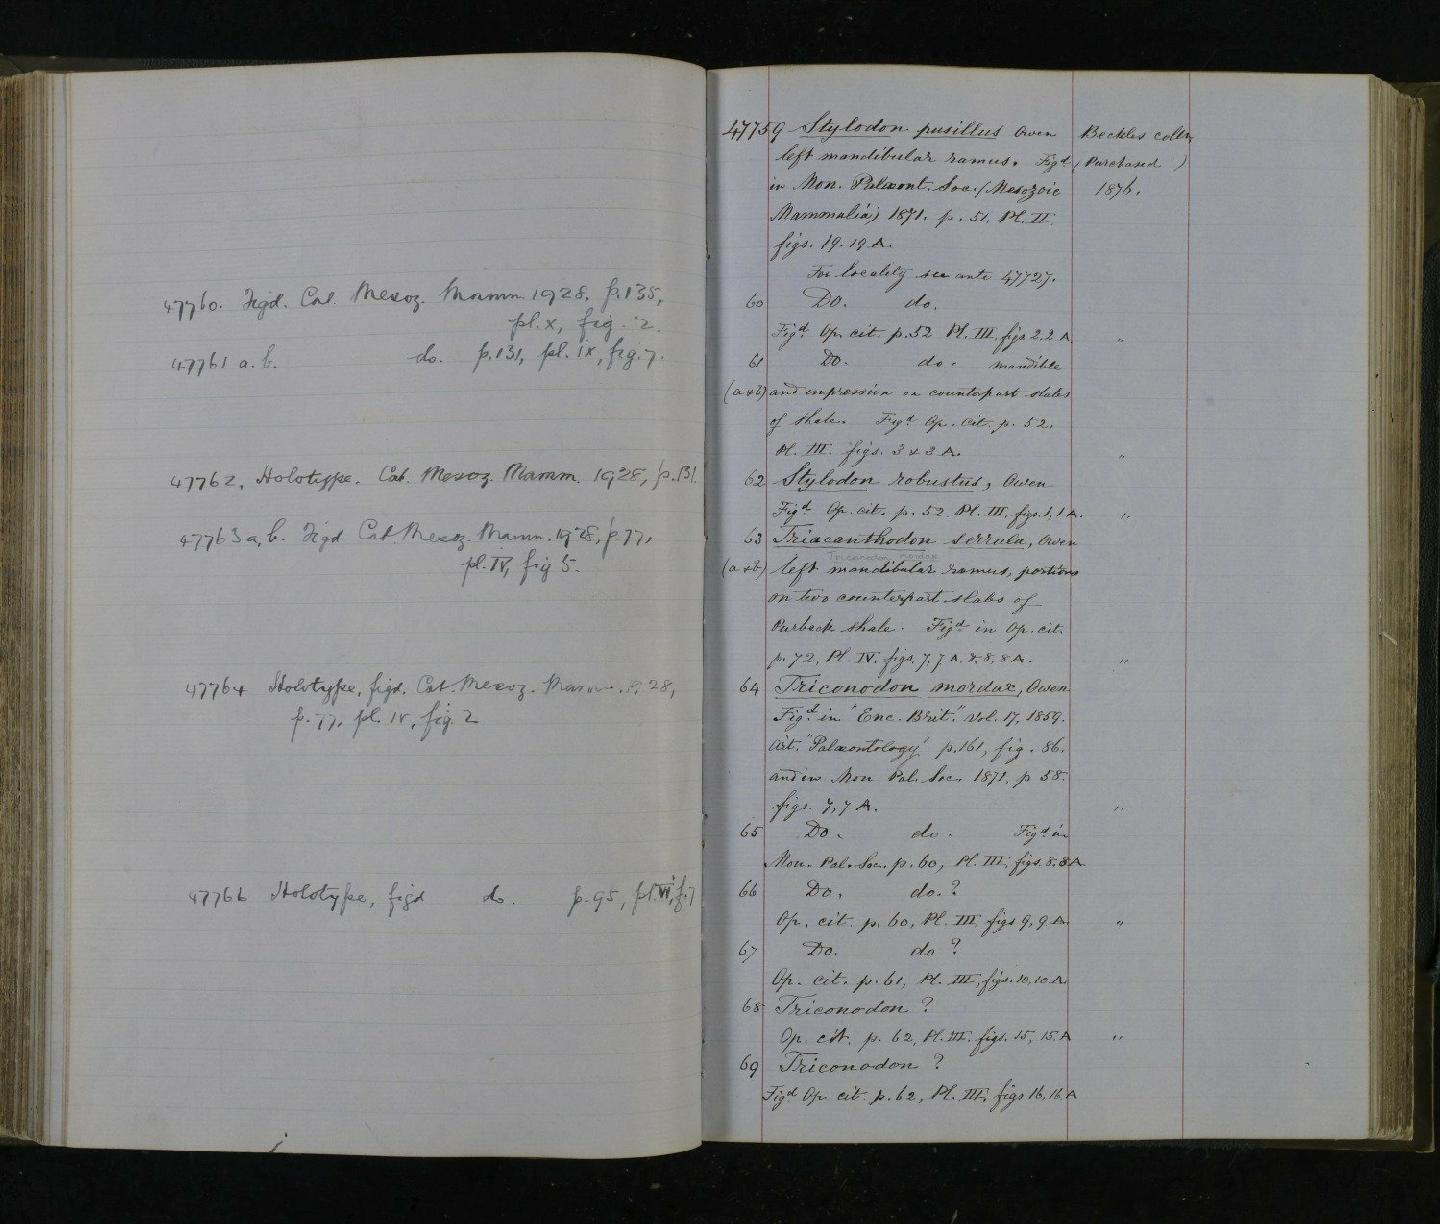 47760. Figd. Cat. Mesoz. Mamm. 1928, p.135,
pl.x, fig. 2.
47761 a.b. do. p.131, pl. ix, fig.7.
47762, Holotype. Cat. Mesoz. Mamm. 1928, p.131.
47763 a, b. Figd Cat. Mesoz. Mamm. 1928, p 77,
pl. IV, fig 5.
47764 Holotype, figd. Cat. Mesoz. Mamm. 1928,
p. 77, pl. IV, fig. 2
47766 Holotype, figd do. p. 95, pl. VI, f. 1
47759 Stylodon pusillus Owen Beckles colln
left mandibular ramus. Figd (Purchased )
in Mon. Palæont. Soc. (Mesozoic 1876.
Mammalia) 1871. p. 51. Pl. II.
figs. 19. 19 A.
For locality see ante 47727.
60 Do. do.
Figd Op. cit p.52 Pl. III, figs 2.2 A. "
61 Do. do. mandible
(a & b) and impression on counterpart slates
of shale. Figd Op. cit. p. 52.
Pl. III. figs. 3 & 3 A. "
62 Stylodon robustus, Owen
Figd Op. cit. p. 52. Pl. III, figs. 1, 1 A. "
63 Triacanthodon serrula, Owen
Triconodon mordax
(a & b) left mandibular ramus, portions
on two counterpart slabs of
Purbeck shale. Figd in Op. cit.
p. 72, Pl. IV. figs. 7, 7 A. & 8, 8 A. "
64 Triconodon mordax, Owen
Figd in "Enc. Brit." Vol. 17, 1859.
Art. "Palæontology" p.161, fig. 86.
and in Mon Pal. Soc. 1871, p 58.
figs. 7, 7 A. "
65 Do. do. Figd in
Mon. Pal. Soc. p. 60, Pl. III, figs. 8. 8 A.
66 Do. do. ?
Op. cit. p. 60, Pl. III, figs 9, 9 A. "
67 Do. do ?
Op. cit. p. 61, Pl. III, figs. 10, 10 A.
68 Triconodon ?
Op. cit. p. 62, Pl. III. figs. 15, 15. A "
69 Triconodon ?
Figd Op. cit. p. 62, Pl. III, figs 16, 16 A